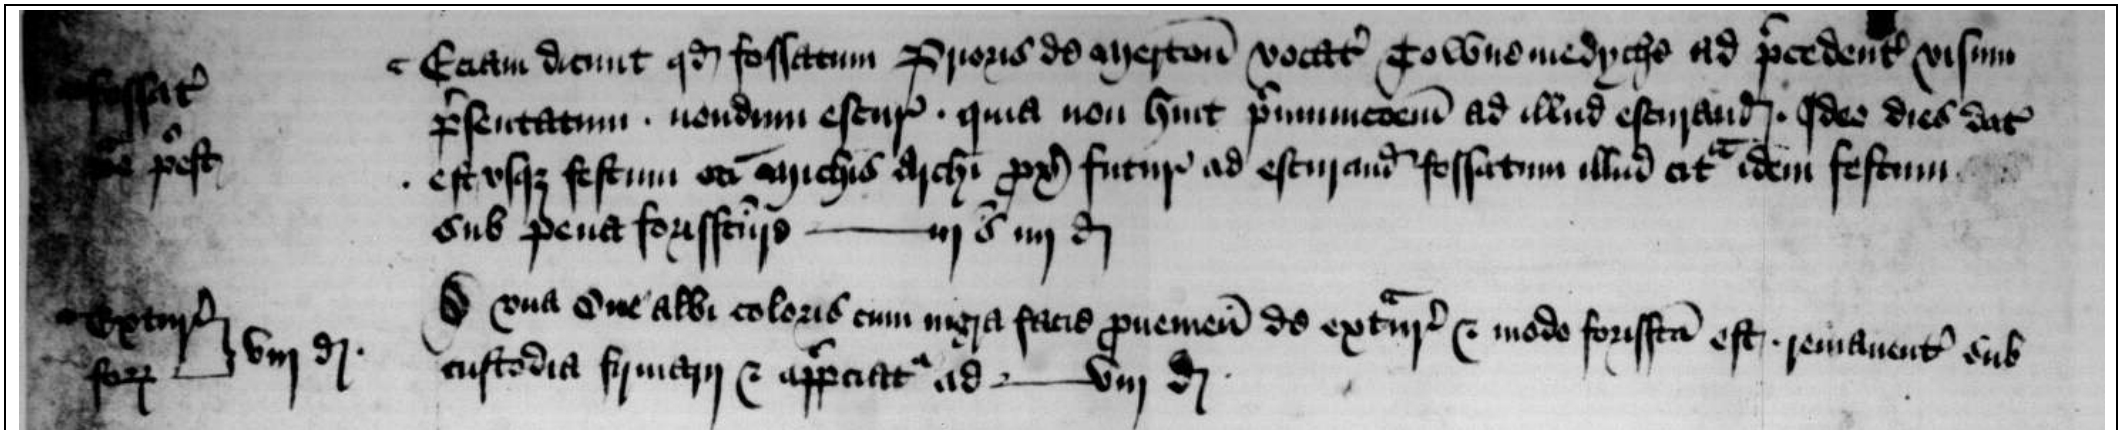 Eciam dicunt qd fossatum Prioris de Merton vocat Townemedyche ad pcedent visum
fossat
psentatum . nondum escur . quia non hnt pmunicoem ad illud escurand . Ideo dies dat
pest
est usq festum sci Michis Archi px futur ad escurand fossatum illud cit idem festum
sub pena forisfcure iij s iiij d
D una Oue albi coloris cum nigra facie puenien de extur & modo forisfca est . remanent sub
Extur
viij d
custodia firmarij & appciat ad viij d
forf